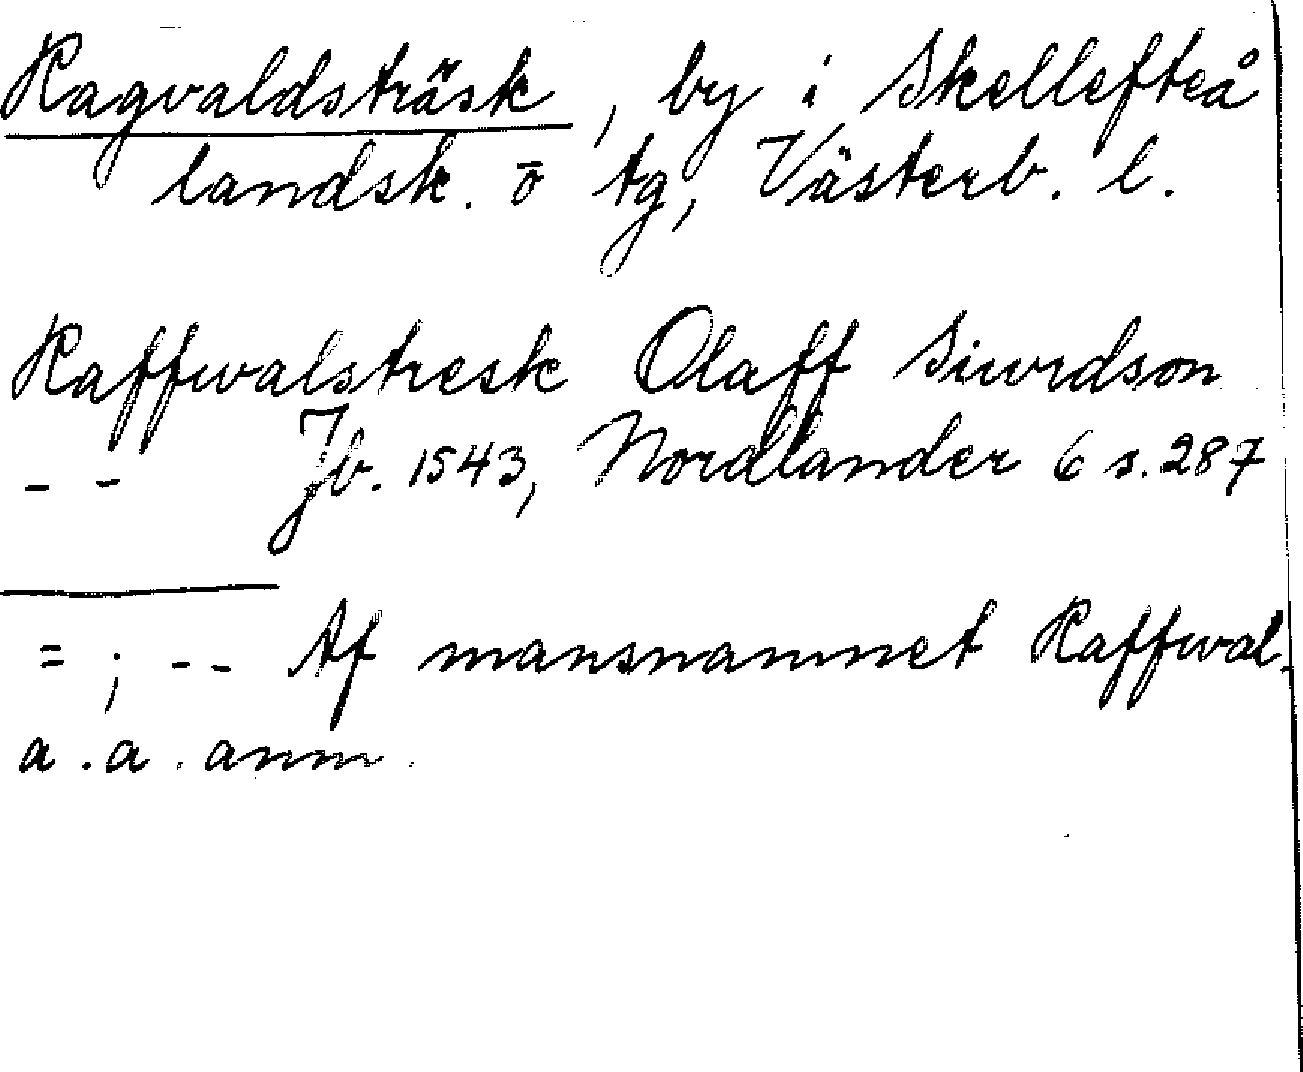 Ragvaldsträsk, by i Skellefteå
landsk. o tg, Västerb. l.
Raffwalstresk Olaff Siwrdson
- - Jb. 1543, Nordlander 6 s. 287
= ; - - Af mansnamnet Raffwal.
a. a. anm.